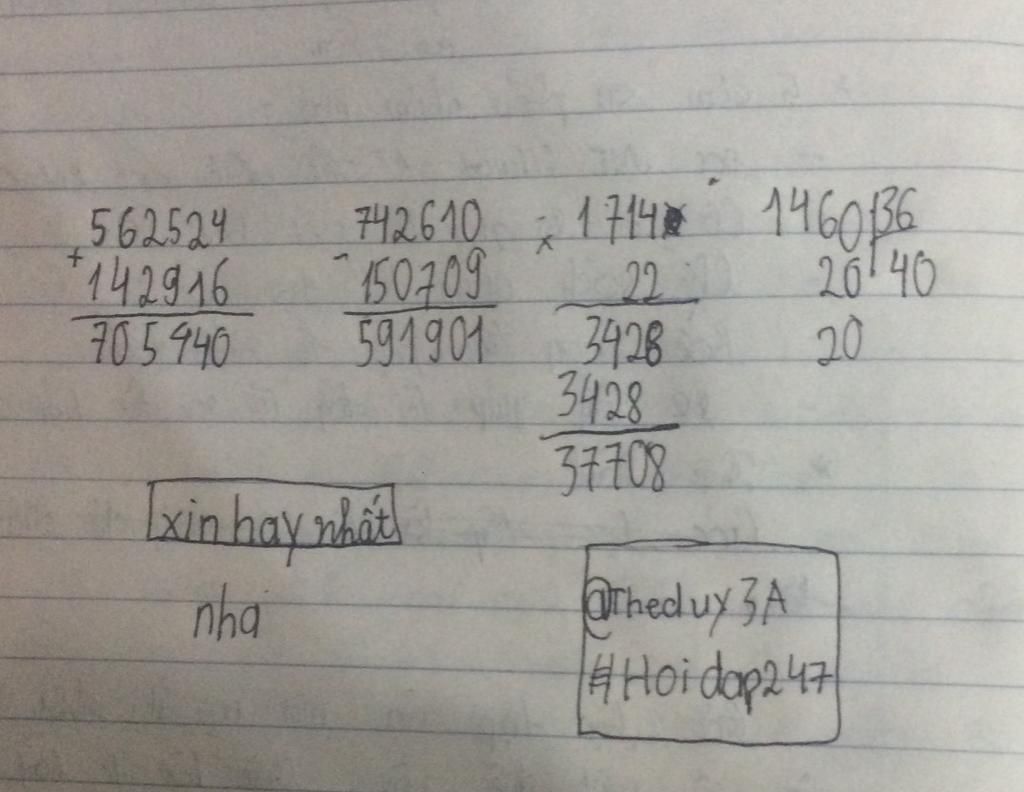 562524 742610 1714 1460 36
+ 142916 - 150709 x 22 20 40
705440 591901 3428 20
3428
37708
xin hay nhất
nha
@Theduy3A
#Hoidap247